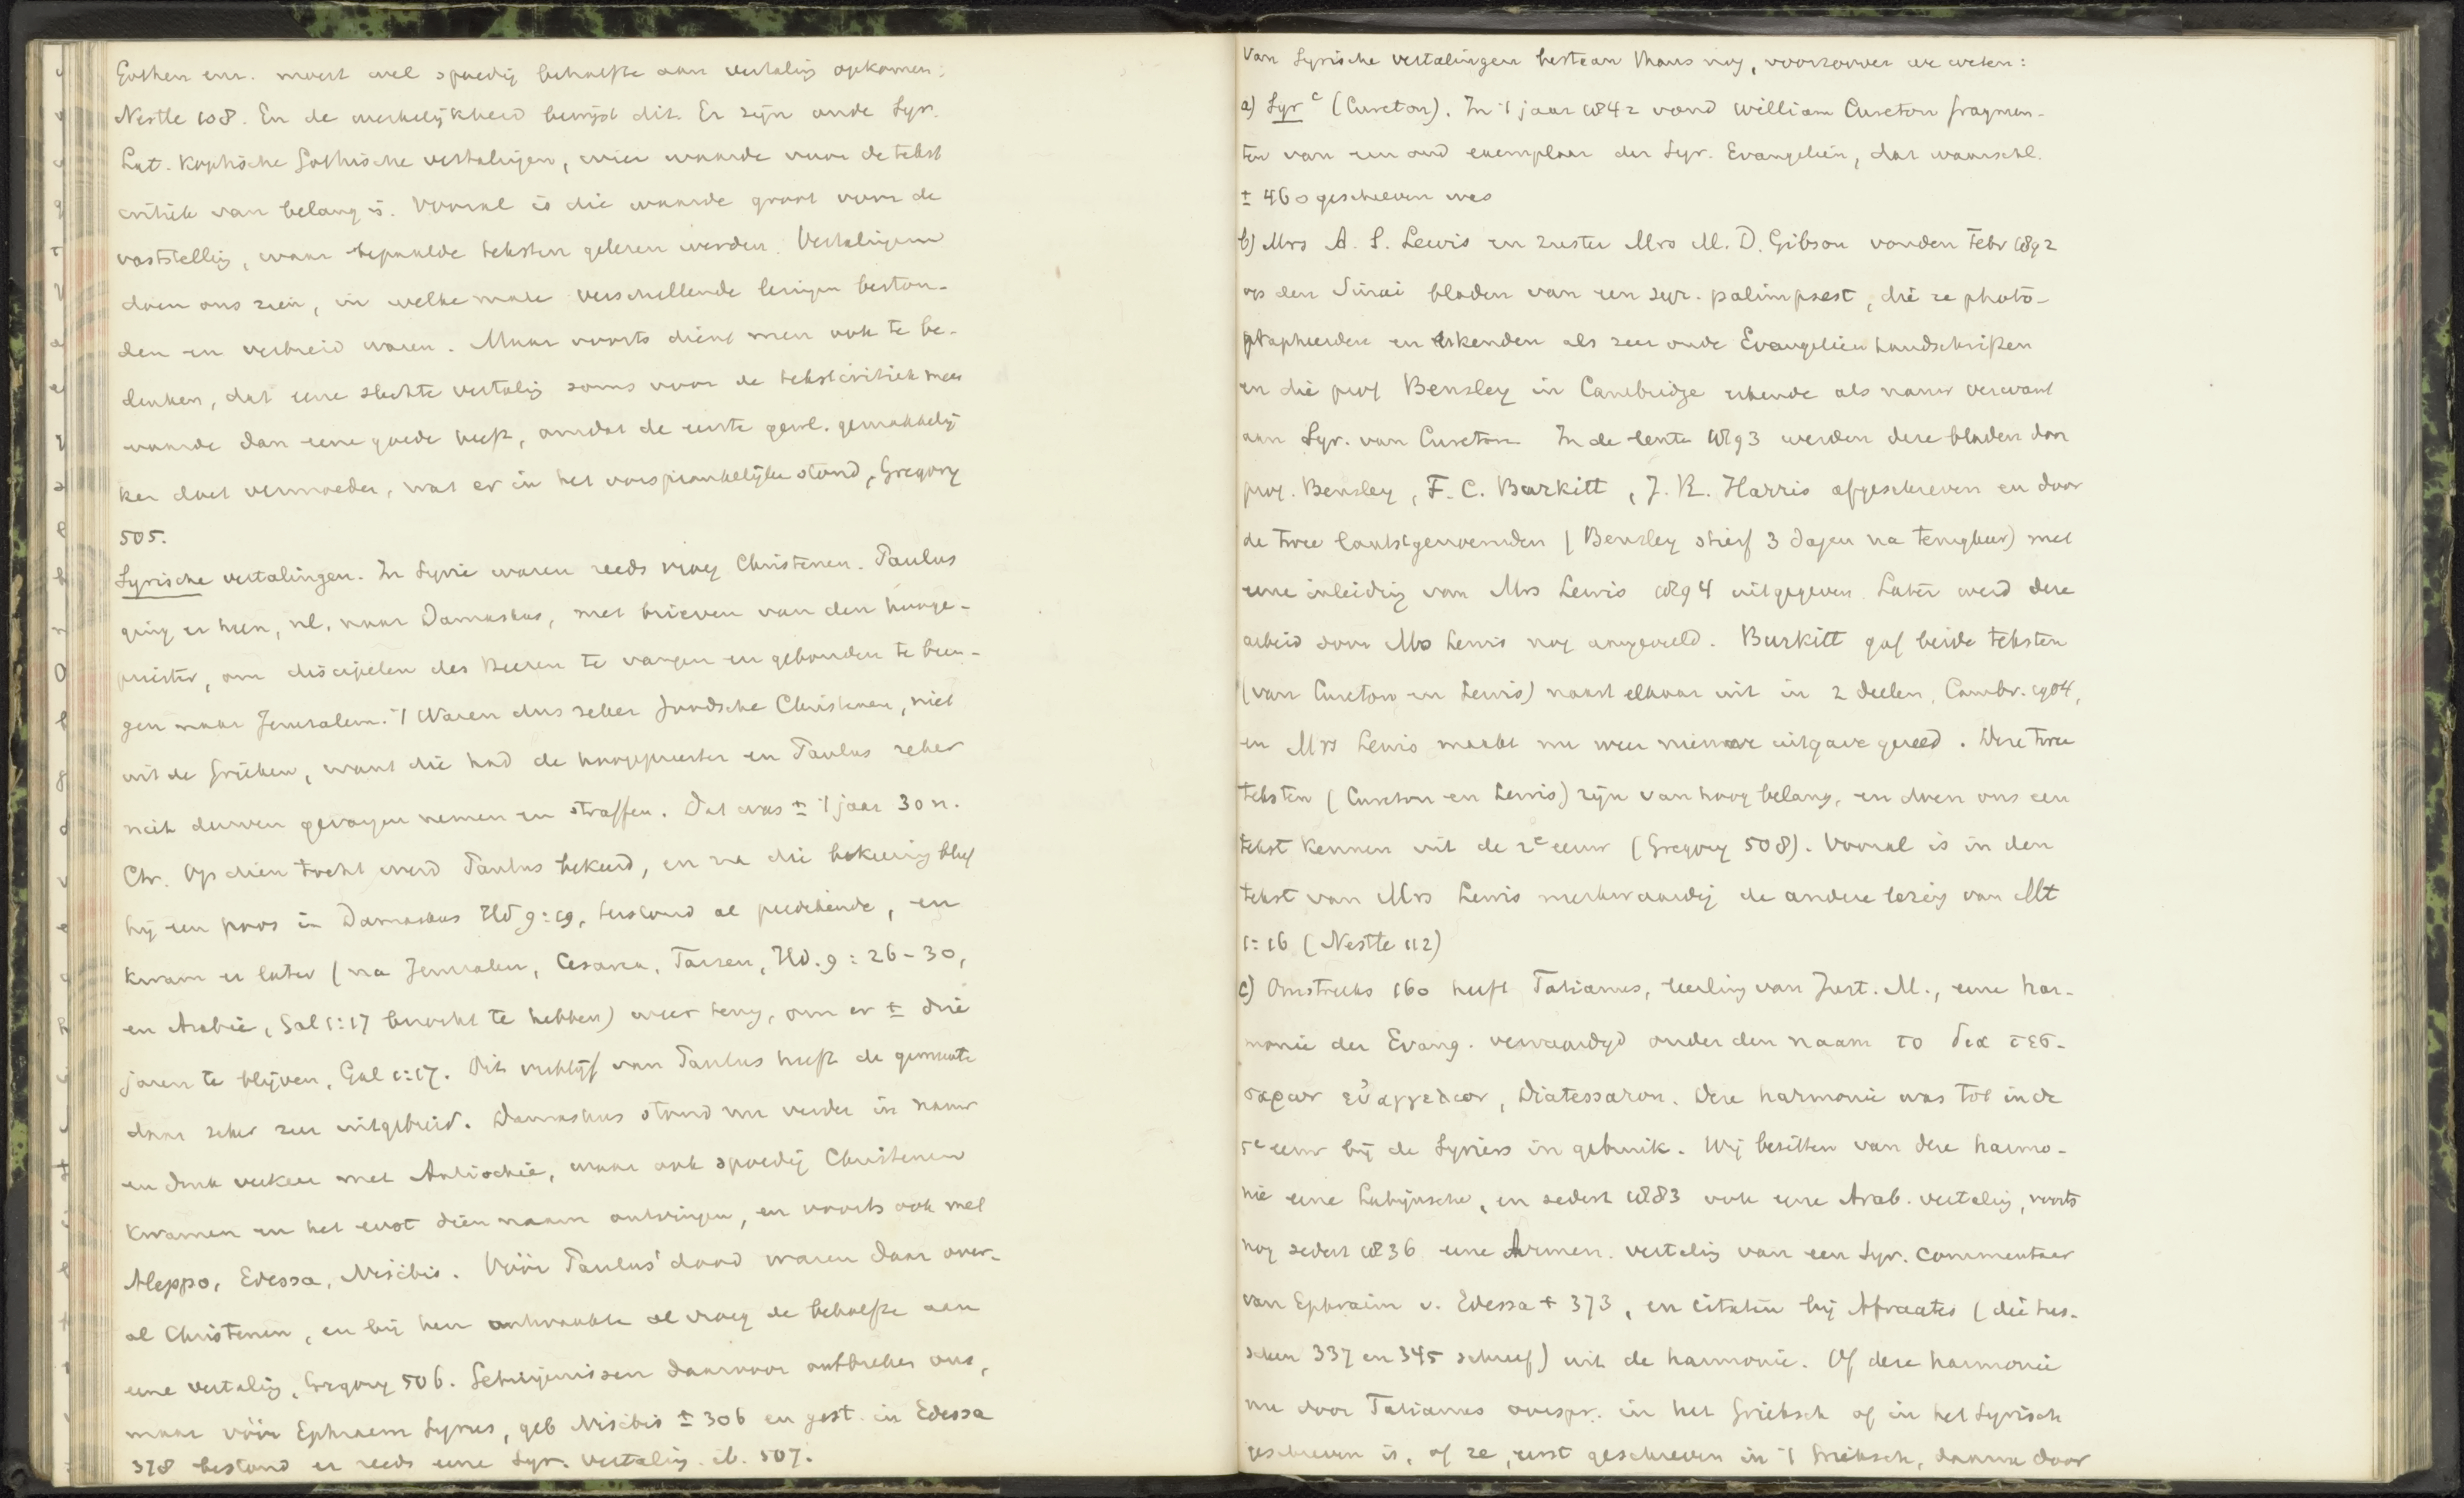 Gothen enz. moest wel spoedig behoefte aan vertaling opkomen:
Nestle 108. En de werkelijkheid bewijst dit. Er zijn oude Syr.
Lat. Koptische Gothische vertalingen, wier waarde voor de tekst
critiek van belang is. Vooral is die waarde groot voor de
vaststelling, waar bepaalde teksten gelezen werden. Vertalingen
doen ons zien, in welke mate verschillende lezingen beston-
den en verbreid waren. Maar voorts dient men ook te be-
denken, dat eene slechte vertaling soms voor de tekstcritiek meer
waarde dan eene goede heeft, omdat de eerste gewl. gemakkelij
ker doet vermoeden, wat er in het oorspronkelijke stond, Gregory
505.
Syrische vertalingen. In Syrie waren reeds vroeg Christenen. Paulus
ging er heen, nl. naar Damaskus, met brieven van den hooge-
priester, om discipelen des Heeren te vangen en gebonden te bren-
gen naar Jeruzalem. 't Waren dus zeker Joodsche Christenen, niet
uit de Grieken, want die had de hoogepriester en Paulus zeker
niet durven gevangen nemen en straffen. Dat was ± 't jaar 30 n.
Chr. Op dien tocht werd Paulus bekeerd, en na die bekeering bleef
hij een poos in Damaskus Hd 9:19, terstond al predikende, en
kwam er later (na Jeruzalem, Cesarea, Tarsen, Hd. 9:26-30,
en Arabië, Gal 1:17 bezocht te hebben) weer terug, om er ± drie
jaren te blijven, Gal 1:17. Dit verblijf van Paulus heeft de gemeente
daar zeker zeer uitgebreid. Damaskus stond nu verder in nauw
en druk verkeer met Antiochië, waar ook spoedig Christenen
kwamen en het eerst dien naam ontvingen, en voorts ook met
Aleppo, Edessa, Nisibis. Vóór Paulus' dood waren daar over-
al Christenen, en bij hen ontwaakte al vroeg de behoefte aan
eene vertaling, Gregory 506. Getuigenissen daarvoor ontbreken ons,
maar vóór Ephraem Syrus, geb Nisibis ± 306 en gest. in Edessa
378 bestond er reeds eene Syr. vertaling. ib. 507.
Van Syrische vertalingen bestaan thans nog, voorzoover we weten:
a) Syr c (Cureton). In 't jaar 1842 vond William Cureton fragmen-
ten van een oud exemplaar der Syr. Evangeliën, dat waarschl.
± 460 geschreven was
b) Mrs A. S. Lewis en zuster Mrs M. D. Gibson vonden Febr 1892
op den Sinai bladen van een syr. palimpsest, die ze photo-
grapheerden en erkenden als zeer oude Evangeliën handschriften
en die prof Bensley in Cambridge erkende als nauw verwant
aan Syr. van Cureton. In de lente 1893 werden deze bladen door
prof. Bensley, F. C. Burkitt, J. R. Harris afgeschreven en door
de twee laatstgenoemden (Bensley stierf 3 dagen na terugkeer) met
eene inleiding van Mrs Lewis 1894 uitgegeven. Later werd deze
arbeid door Mrs Lewis nog aangevuld. Burkitt gaf beide teksten
(van Cureton en Lewis) naast elkaar uit in 2 deelen, Cambr. 1904,
en Mrs Lewis maakt nu weer nieuwe uitgave gereed. Deze twee
teksten (Cureton en Lewis) zijn van hoog belang, en doen ons een
tekst kennen uit de 2e eeuw (Gregory 508). Vooral is in den
tekst van Mrs Lewis merkwaardig de andere lezing van Mt
1:16 (Nestle 112)
c) Omstreeks 160 heeft Tatianus, leerling van Just. M., eene har-
monie der Evang. vervaardigd onder den naam το δια τεσ-
σαρων εὐαγγελιον, Diatessaron. Deze harmonie was tot in de
5e eeuw bij de Syriers in gebruik. Wij bezitten van deze harmo-
nie eene Latijnsche, en sedert 1883 ook eene Arab. vertaling, voorts
nog sedert 1836 eene Armen. vertaling van een Syr. commentaar
van Ephraim v. Edessa + 373, en citaten bij Afraates (die tus-
schen 337 en 345 schreef) uit de harmonie. Of deze harmonie
nu door Tatianus oorspr. in het Grieksch of in het Syrisch
geschreven is, of ze, eerst geschreven in 't Grieksch, daarna door